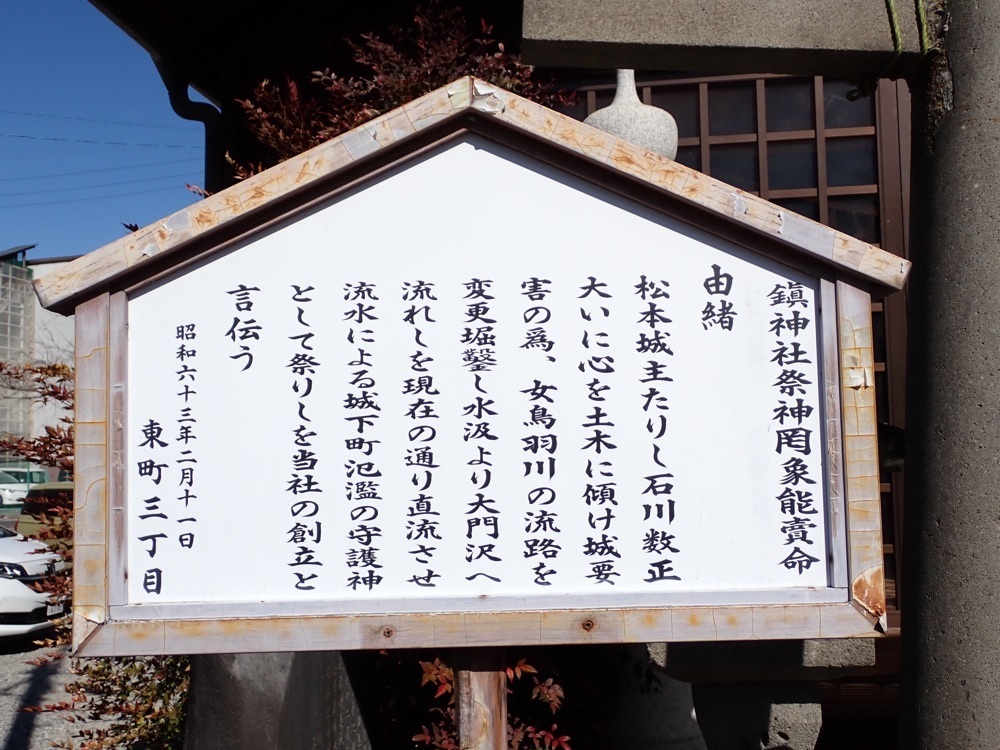 鎭神社祭神罔象能賣命
由緒
松本城主たりし石川数正
大いに心を土木に傾け城要
害の爲、女鳥羽川の流路を
変更堀鑿し水汲より大門沢へ
流れしを現在の通り直流させ
流水による城下町氾濫の守護神
として祭りしを当社の創立と
言伝う
昭和六十三年二月十一日
東町三丁目